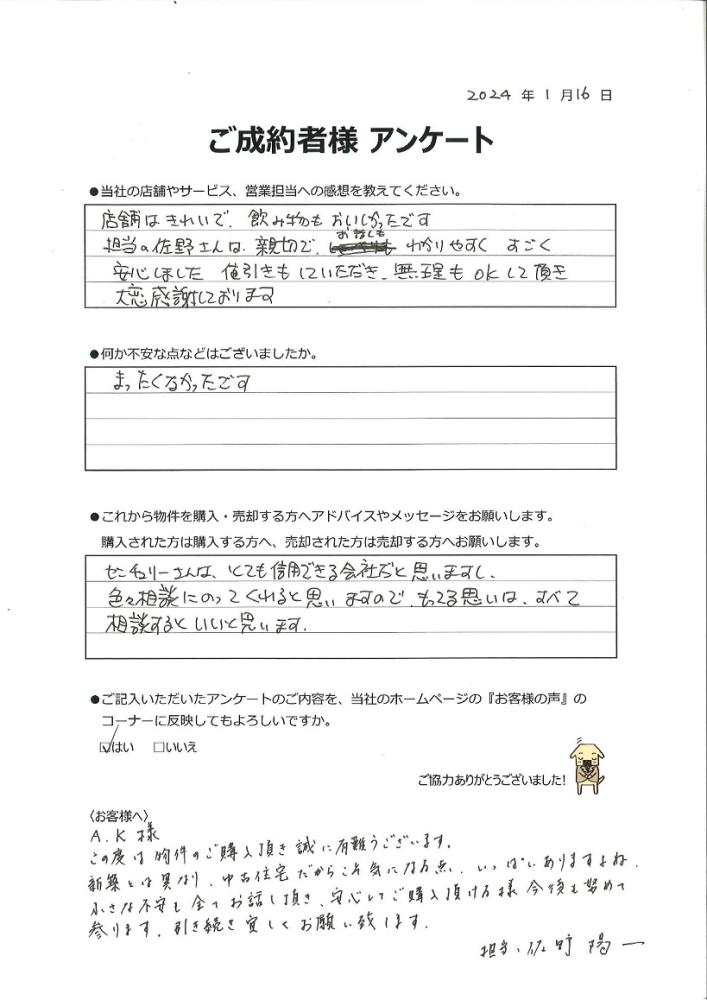 2024 年 1 月 16 日
ご成約者様 アンケート
●当社の店舗やサービス、営業担当への感想を教えてください。
店舗はきれいで、飲み物もおいしかったです
担当の佐野さんは、親切で、お話しも わかりやすく すごく
安心しました 値引きもしていただき、無理も OKして頂き
大変感謝しております
●何か不安な点などはございましたか。
まったくなかったです
●これから物件を購入・売却する方へアドバイスやメッセージをお願いします。
購入された方は購入する方へ、売却された方は売却する方へお願いします。
センチュリーさんは、とても信用できる会社だと思いますし、
色々相談にのってくれると思いますので、もってる思いは、すべて
相談するといいと思います.
●ご記入いただいたアンケートのご内容を、当社のホームページの『お客様の声』の
コーナーに反映してもよろしいですか。
☑はい □いいえ
ご協力ありがとうございました!
〈お客様へ〉
A.K様
この度は物件のご購入頂き誠に有難うございます.
新築とは異なり、中古住宅だからこそ気になる点、いっぱいありますよね.
小さな不安も全てお話し頂き、安心してご購入頂ける様今後も努めて
参ります. 引き続き宜しくお願い致します.
担当、佐野 陽一